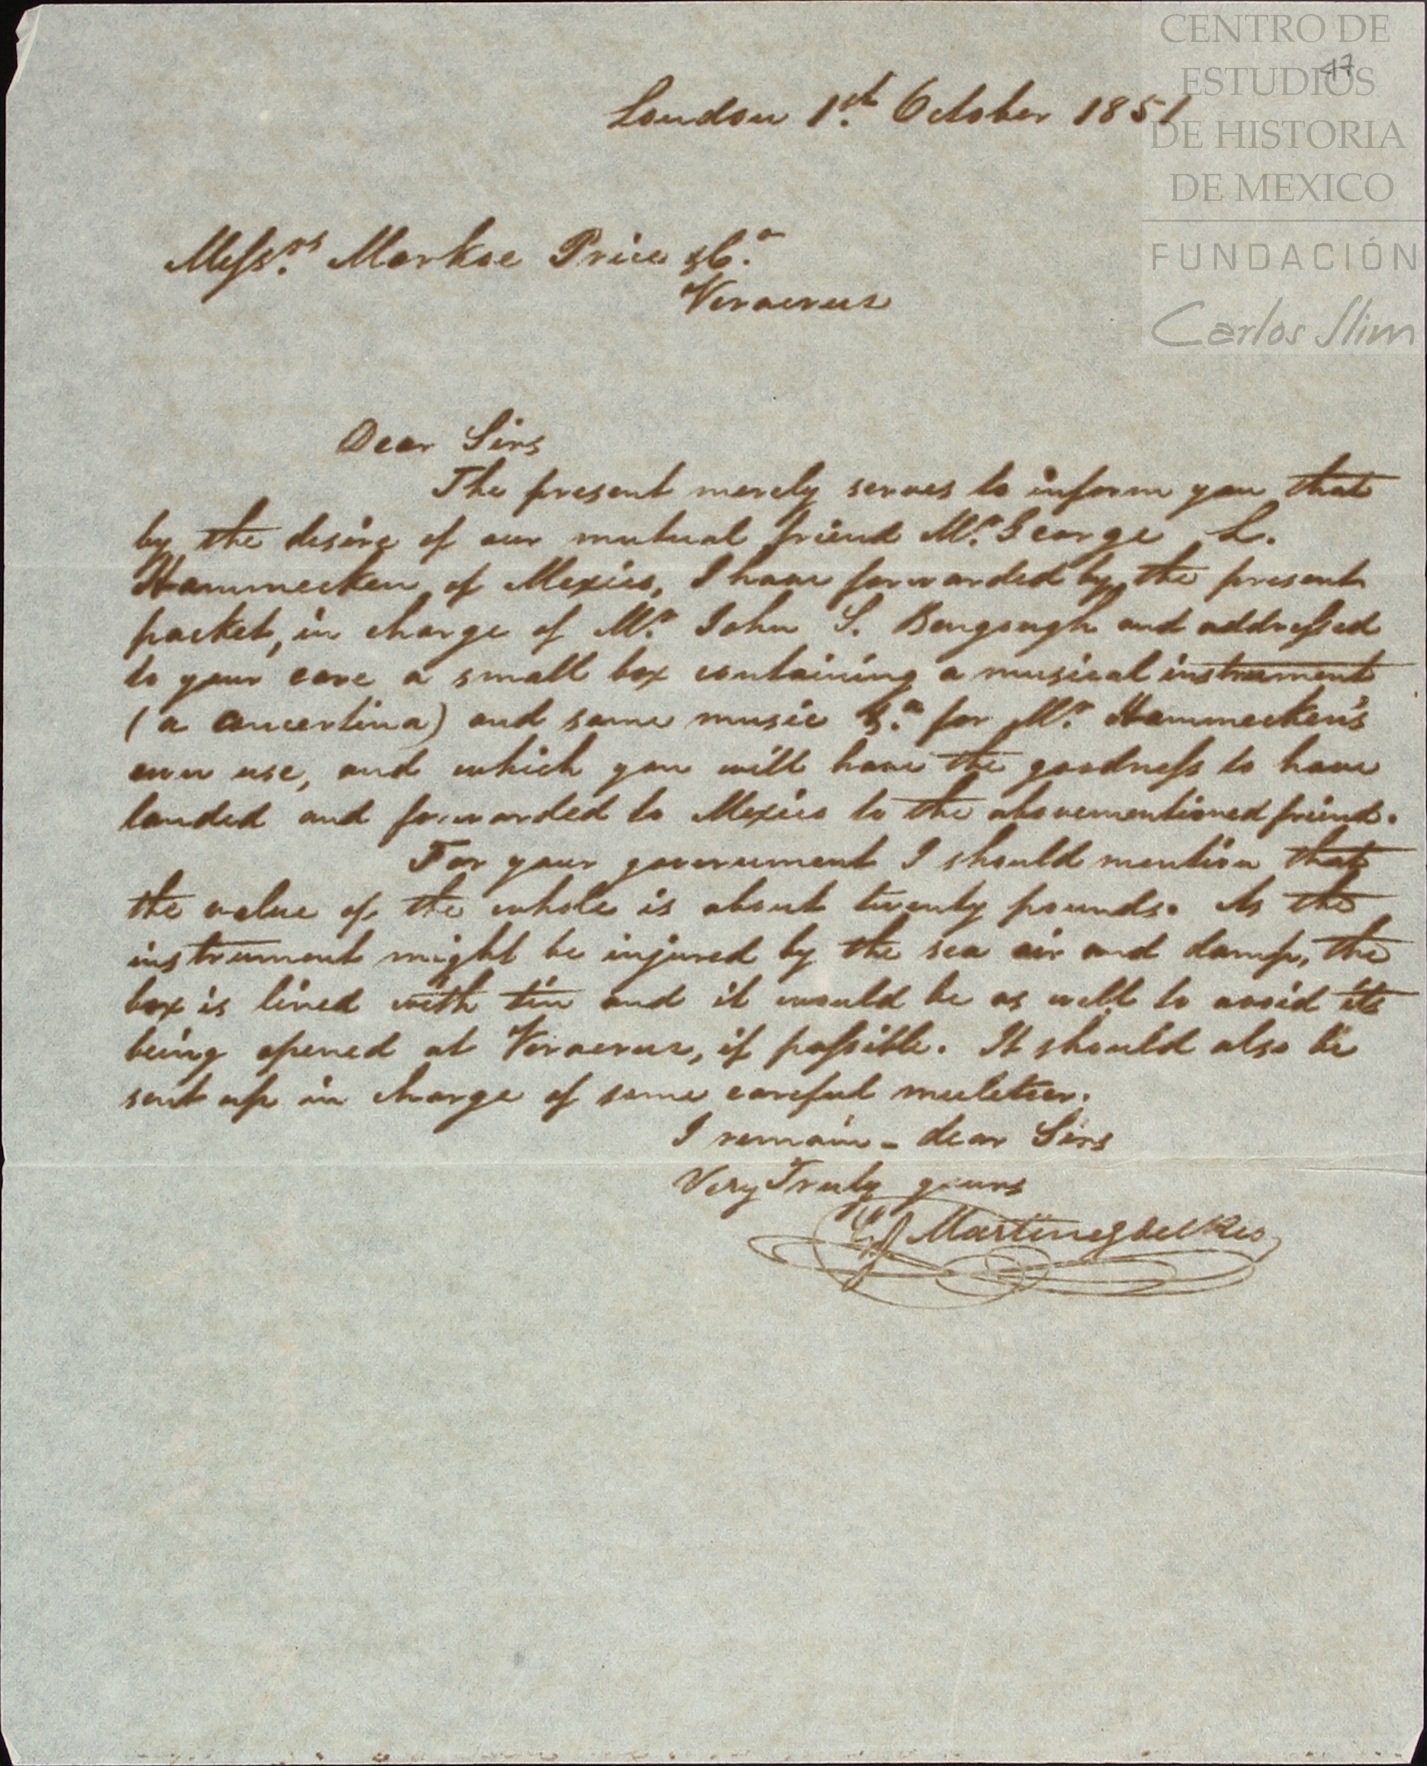 CENTRO DE
ESTUDIOS
DE HISTORIA
DE MEXICO
FUNDACIÓN
Carlos Slim
47
London 1st. October 1851
Messrs. Markoe Price & Co.
Veracruz
Dear Sirs
The present merely serves to inform you that
by the desire of our mutual friend Mr. George L.
Hammecken of Mexico, I have forwarded by the present
packet, in charge of Mr. John S. Bengough and addressed
to your care a small box containing a musical instrument
(a concertina) and some music &a. for Mr. Hammecken's
own use, and which you will have the goodness to have
landed and forwarded to Mexico to the abovementioned friend.
For your government I should mention that
the value of the whole is about twenty pounds. As the
instrument might be injured by the sea air and damp, the
box is lined with tin and it would be as well to avoid its
being opened at Veracruz, if possible. It should also be
sent up in charge of some careful muleteer.
I remain - dear Sirs
Very Truly yours
Martinez del Rio